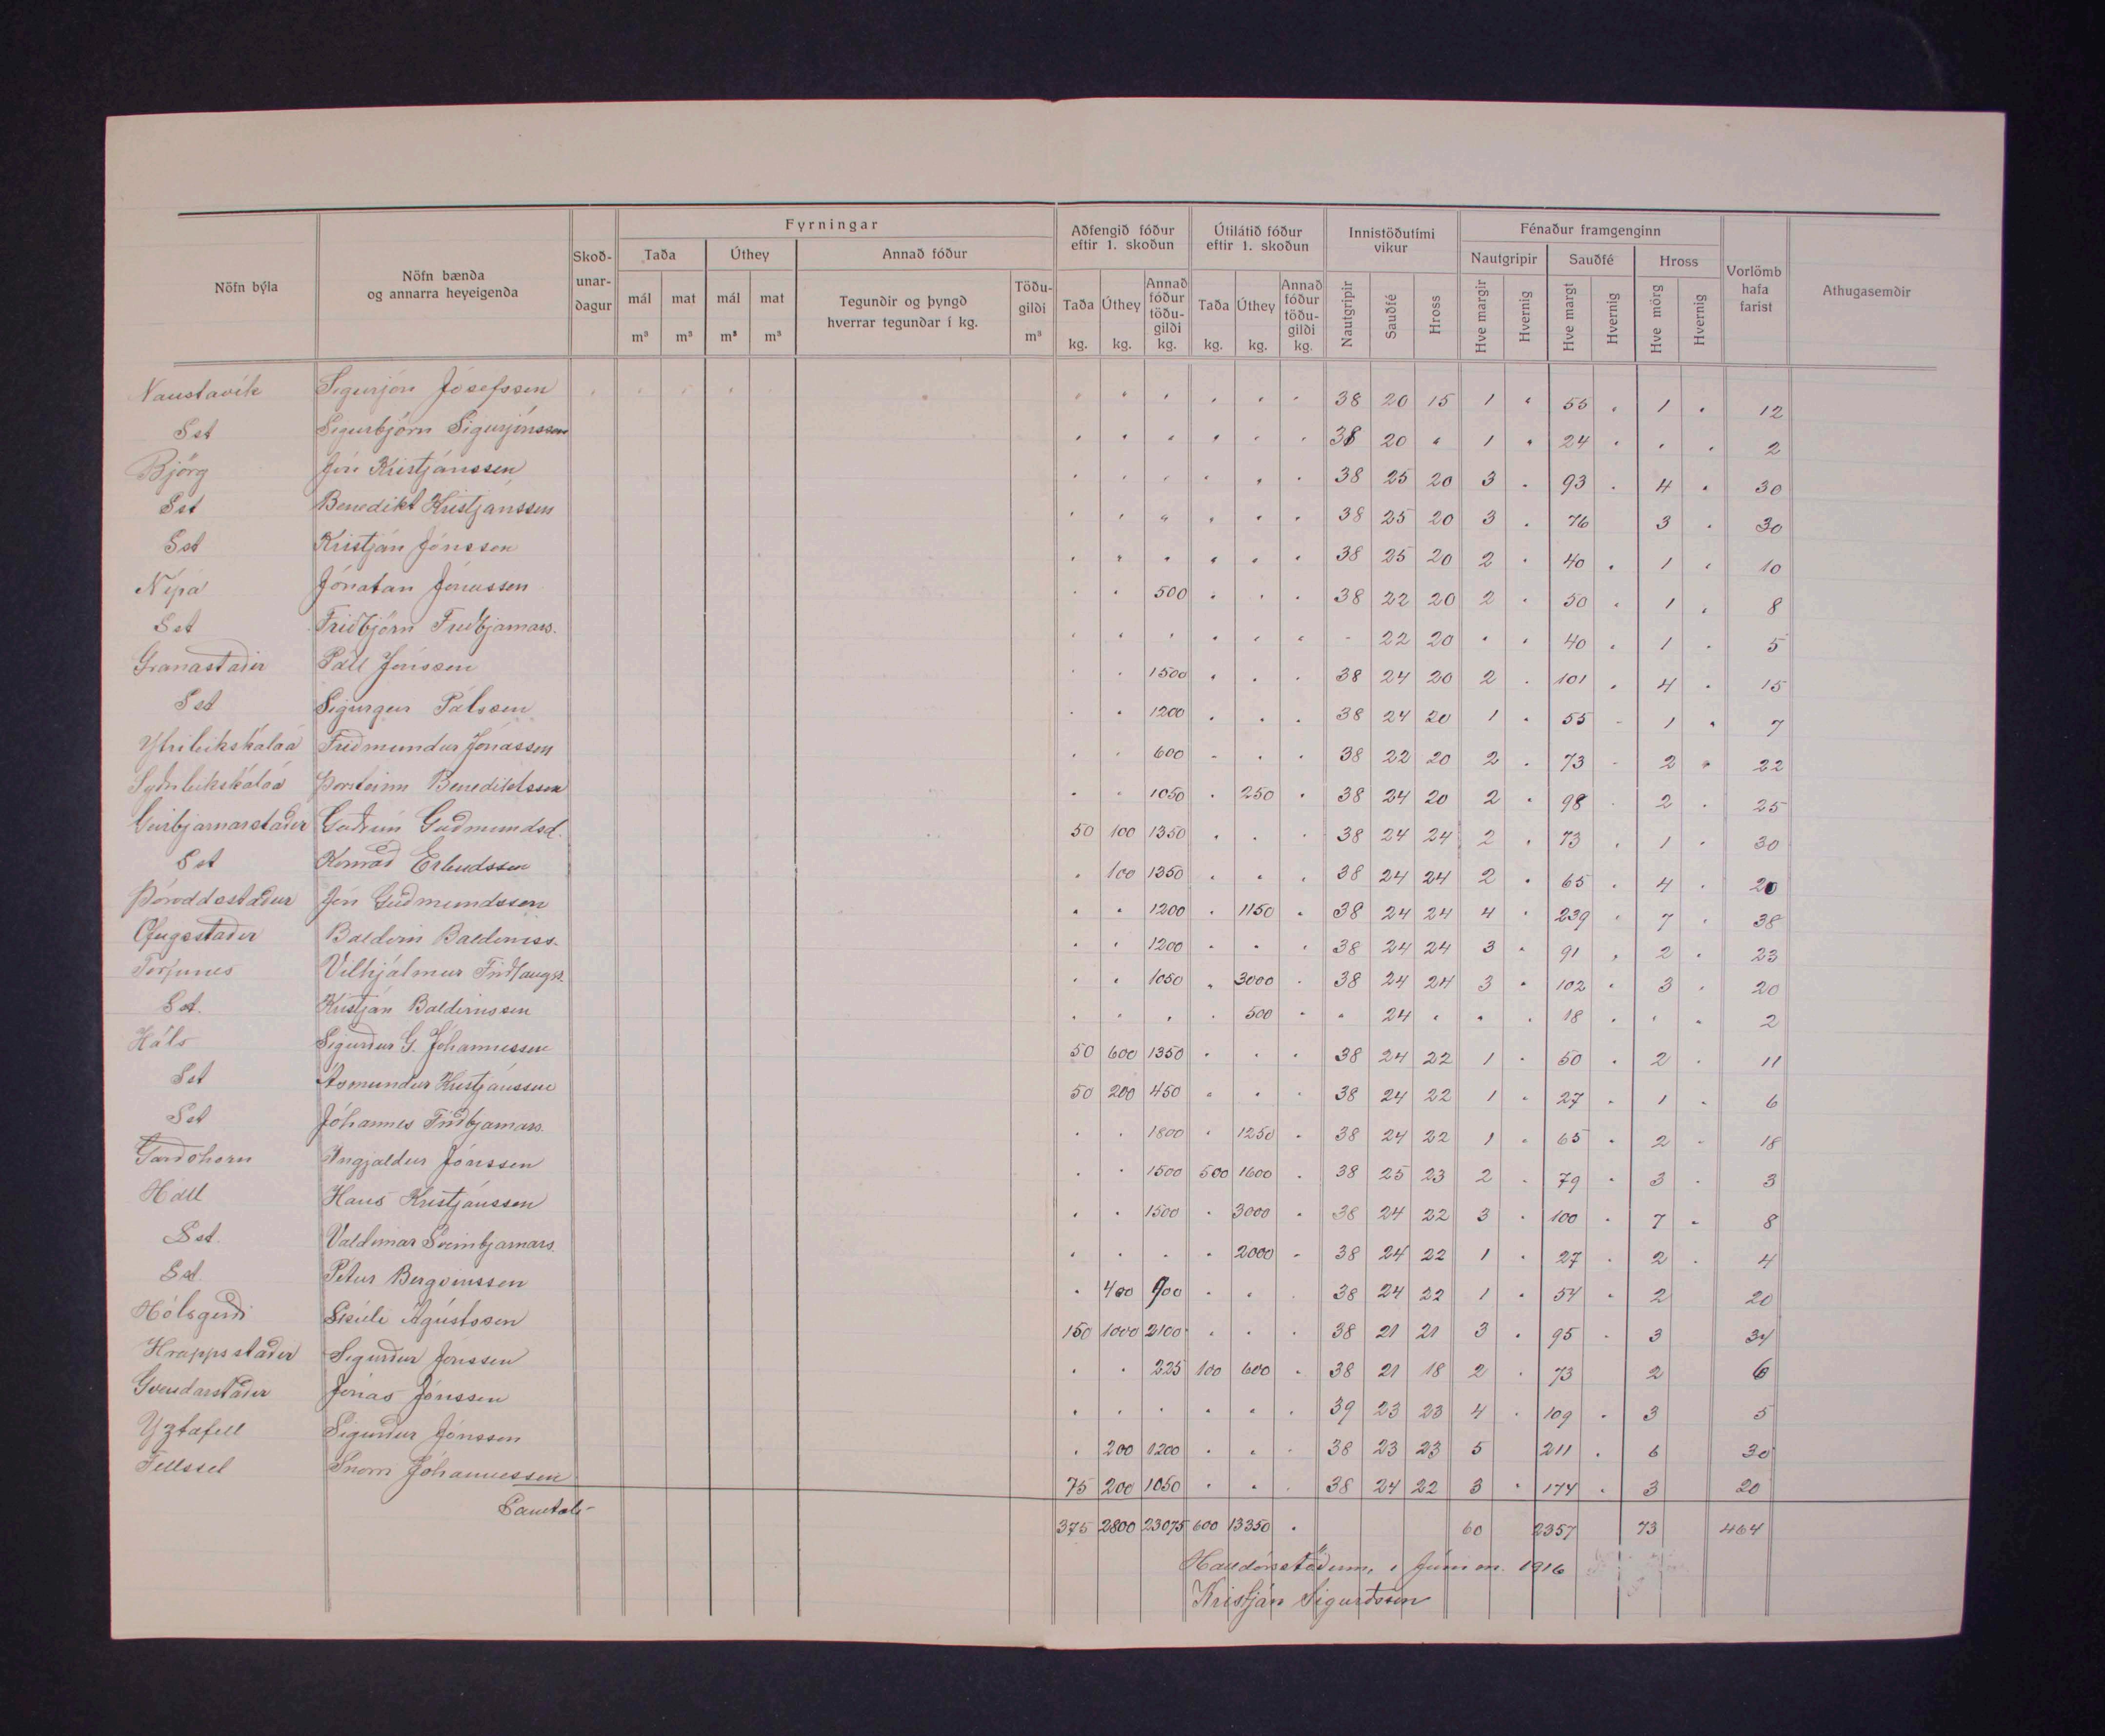 Nöfn býla | Nöfn bænda og annarra heyeigenda | Skoð-unar-dagur | Fyrningar | Aðfengið fóður eftir 1. skoðun | Útilátið fóður eftir 1. skoðun | Innistöðutími vikur | Fénaður framgenginn | Vorlömb hafa farist | Athugasemdir
Taða | Úthey | Annað fóður | Nautgripir | Sauðfé | Hross
mál m³ | mat m³ | mál m³ | mat m³ | Tegundir og þyngd hverrar tegundar í kg. | Töðu-gildi m³ | Taða kg. | Úthey kg. | Annað fóður töðu-gildi kg. | Taða kg. | Úthey kg. | Annað fóður töðu-gildi kg. | Nautgripir | Sauðfé | Hross | Hve margir | Hvernig | Hve margt | Hvernig | Hve mörg | Hvernig
Naustavík Sigurjón Jósefsson 38 20 15 1 " 55 " 1 " 12
Sst Sigurbjörn Sigurjónsson 38 20 " 1 " 24 " " " 2
Björg Jón Kristjánsson 38 25 20 3 " 93 " 4 " 30
Sst Benedikt Kristjánsson 38 25 20 3 " 76 3 " 30
Sst Kristján Jónsson 38 25 20 2 " 40 " 1 " 10
Nípá Jónatan Jónasson 500 38 22 20 2 " 50 " 1 " 8
Sst Friðbjörn Friðbjarnars. 22 20 " " 40 " 1 " 5
Granastaðir Páll Jónsson 1500 38 24 20 2 " 101 " 4 " 15
Sst Sigurgeir Pálsson 1200 38 24 20 1 " 55 " 1 " 7
Ytrileikskálaá Friðmundur Jónasson 600 38 22 20 2 " 73 " 2 " 22
Syðrileikskálaá Þorsteinn Benediktsson 1050 " 250 " 38 24 20 2 " 98 " 2 " 25
Geirbjarnarstaðir Guðrún Guðmundsd. 50 100 1350 38 24 24 2 " 73 " 1 " 30
Sst Konráð Erlendsson 100 1350 38 24 24 2 " 65 " 4 " 20
Þóroddsstaður Jón Guðmundsson 1200 " 1150 " 38 24 24 4 " 239 " 7 " 38
Ófeigsstaðir Baldvin Baldvinss. 1200 38 24 24 3 " 91 " 2 " 23
Torfunes Vilhjálmur Friðlaugss. 1050 " 3000 " 38 24 24 3 " 102 " 3 " 20
Sst. Kristján Baldvinsson 500 " " 24 " " " 18 " " " 2
Háls Sigurður G. Jóhannesson 50 600 1350 38 24 22 1 " 50 " 2 " 11
Sst Ásmundur Kristjánsson 50 200 450 38 24 22 1 " 27 " 1 " 6
Sst Jóhannes Friðbjarnars. 1800 " 1250 " 38 24 22 1 " 65 " 2 " 18
Garðshorn Ingjaldur Jónsson 1500 500 1600 " 38 25 23 2 " 79 " 3 " 3
Hóll Hans Kristjánsson 1500 " 3000 " 38 24 22 3 " 100 " 7 " 8
Sst. Valdimar Sveinbjarnars. 2000 " 38 24 22 1 " 27 " 2 " 4
Sst. Pétur Bergvinsson 400 900 38 24 22 1 " 54 " 2 20
Hólsgerði Sísíli Ágústsson 150 1000 2100 38 21 21 3 " 95 " 3 34
Hrappsstaðir Sigurður Jónsson 225 100 600 " 38 21 18 2 " 73 2 6
Gvendarstaðir Jónas Jónsson 39 23 23 4 " 109 " 3 5
Yztafell Sigurður Jónsson 200 1200 38 23 23 5 211 " 6 30
Fellssel Snorri Jóhannesson 75 200 1050 38 24 22 3 " 174 " 3 20
Samtals 375 2800 23075 600 13350 " 60 2357 73 464
Halldórsstöðum, í Júní m. 1916
Kristján Sigurðsson